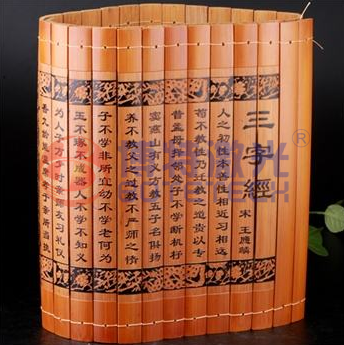 三字經
宋 王應麟
人之初性本善性相近习相远
苟不教性乃迁教之道贵以专
昔孟母择邻处子不学断机杼
窦燕山有义方教五子名俱扬
养不教父之过教不严师之惰
子不学非所宜幼不学老何为
玉不琢不成器人不学不知义
为人子方少时亲师友习礼仪
香九龄能温席孝于亲所当执